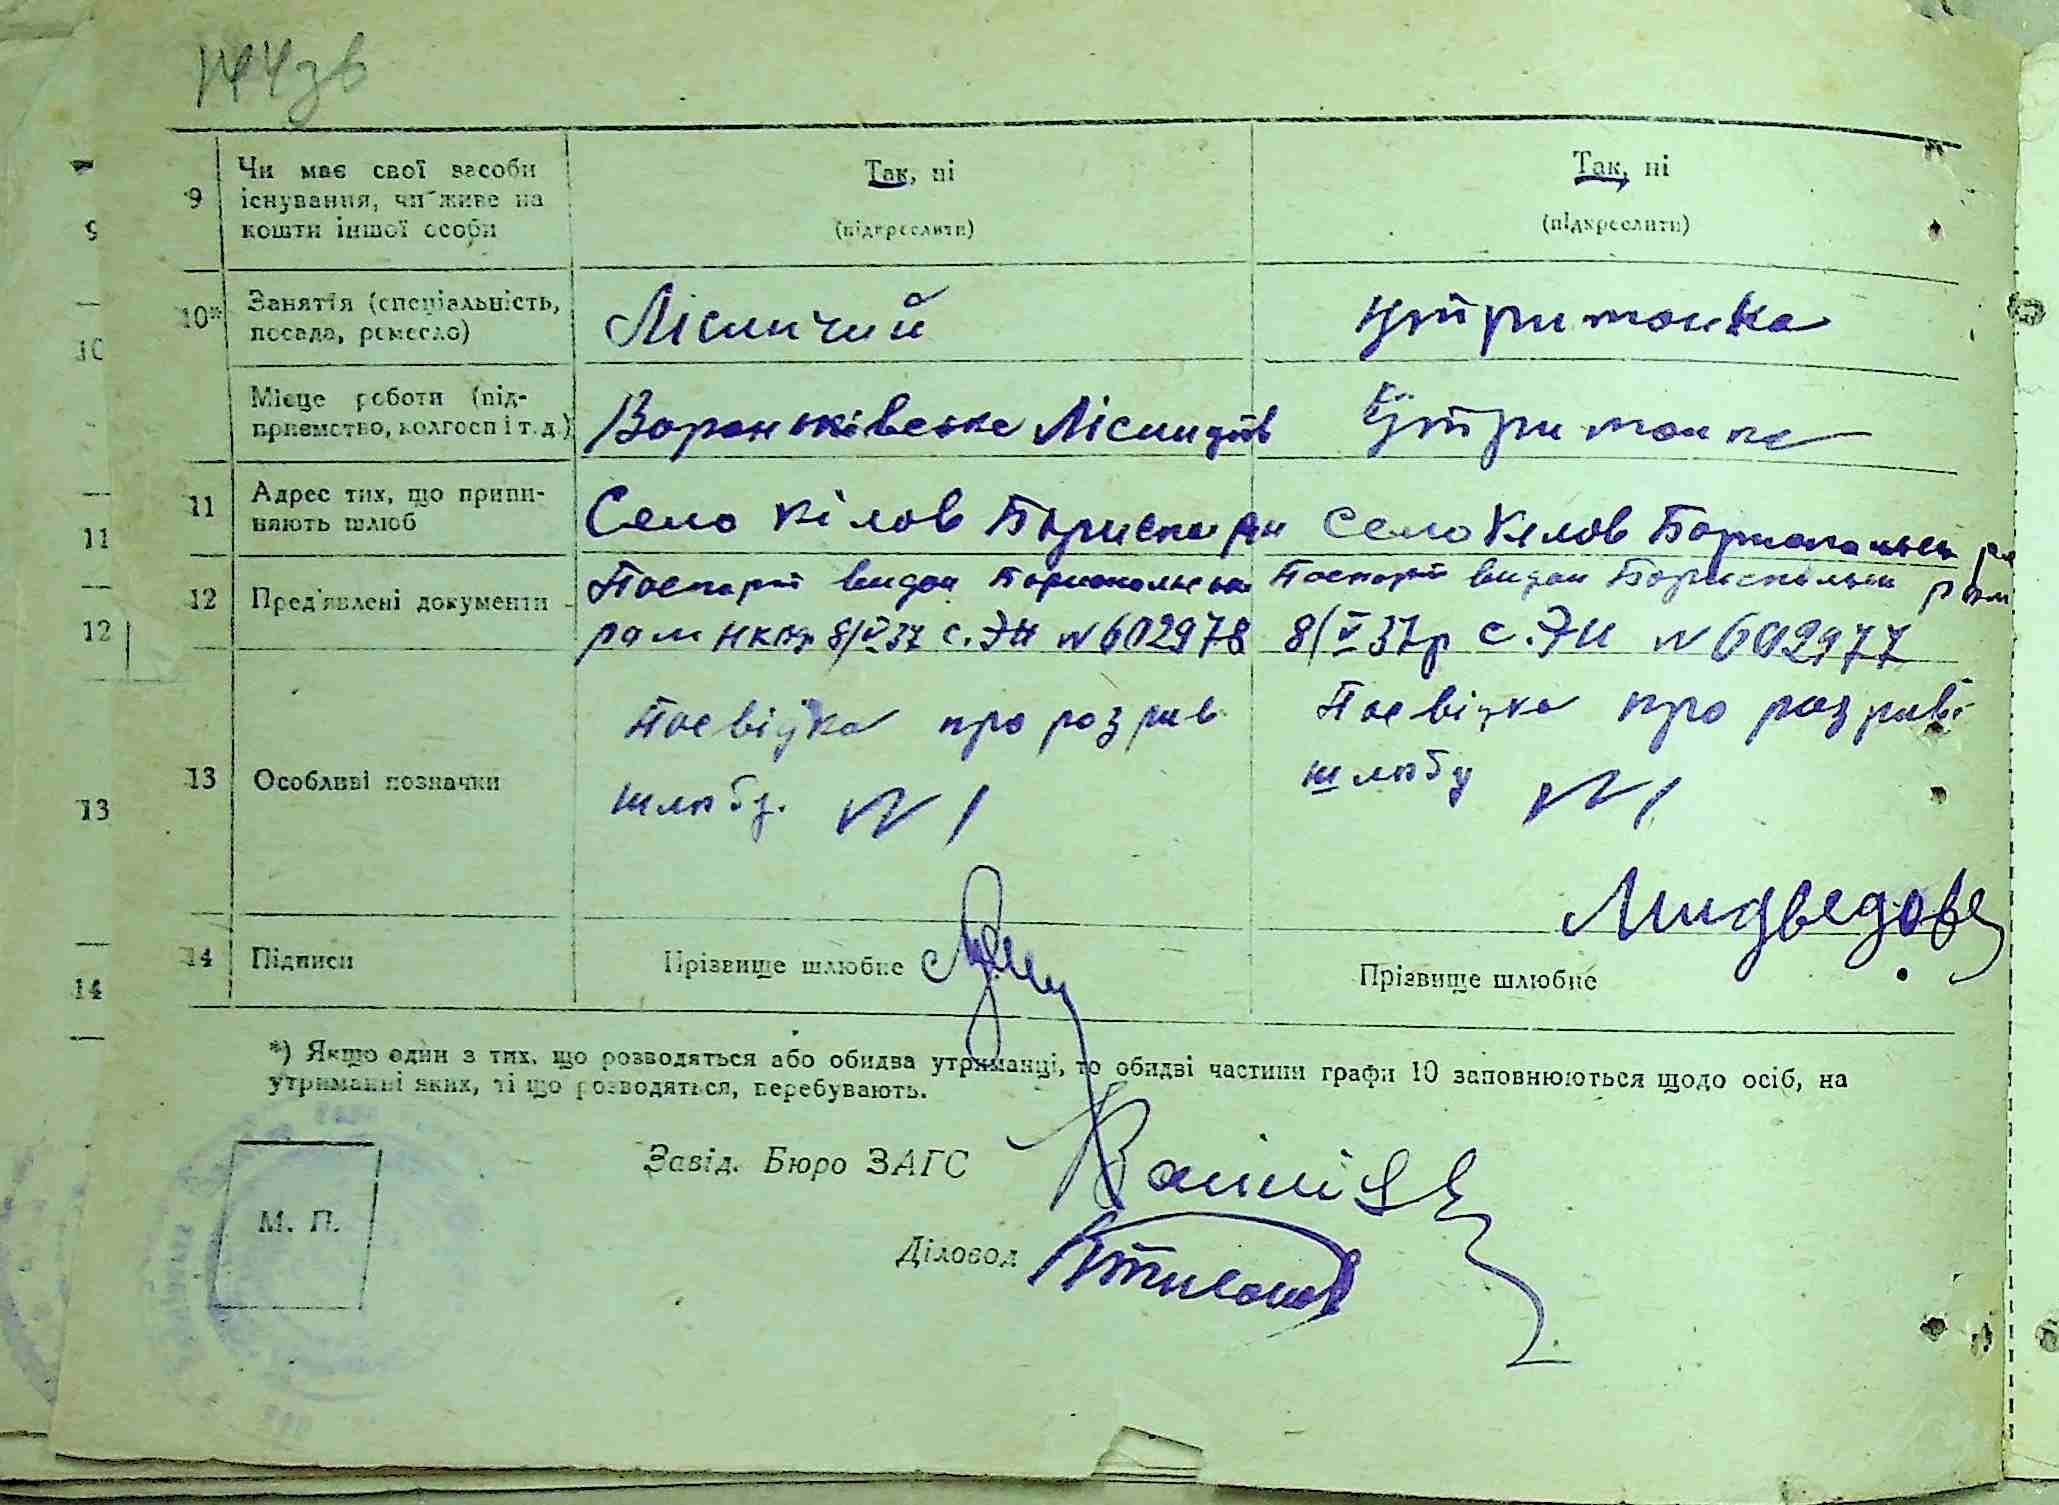 144зв
9 Чи має свої засоби існування, чи живе на кошти іншої особи
Так, ні
(підкреслити)
Так, ні
(підкреслити)
10* Заняття (спеціальність, посада, ремесло)
Лісничий
Утриманка
Місце роботи (підприємство, колгосп і т. д.)
Вороньківське Лісництв
Утриманка
11 Адрес тих, що припиняють шлюб
Село Кілов Бориспол рн
Село Кілов Бориспольськ рн
12 Пред'явлені документи
Паспорт видан Бориспольським
рам НКВД 8/V 37 с. ЭН № 602978
Паспорт видан Бориспольськ рам
8/V 37р с. ЭН № 602977
13 Особливі позначки
Посвідка про розрив
шлюбу. № 1
Посвідка про розрив
шлюбу № 1
14 Підписи
Прізвище шлюбне
Мидведова
Прізвище шлюбне
*) Якщо один з тих, що розводяться або обидва утриманці, то обидві частини графи 10 заповнюються щодо осіб, на
утриманні яких, ті що розводяться, перебувають.
Завід. Бюро ЗАГС
М. П.
Діловод
9
10
11
12
13
14